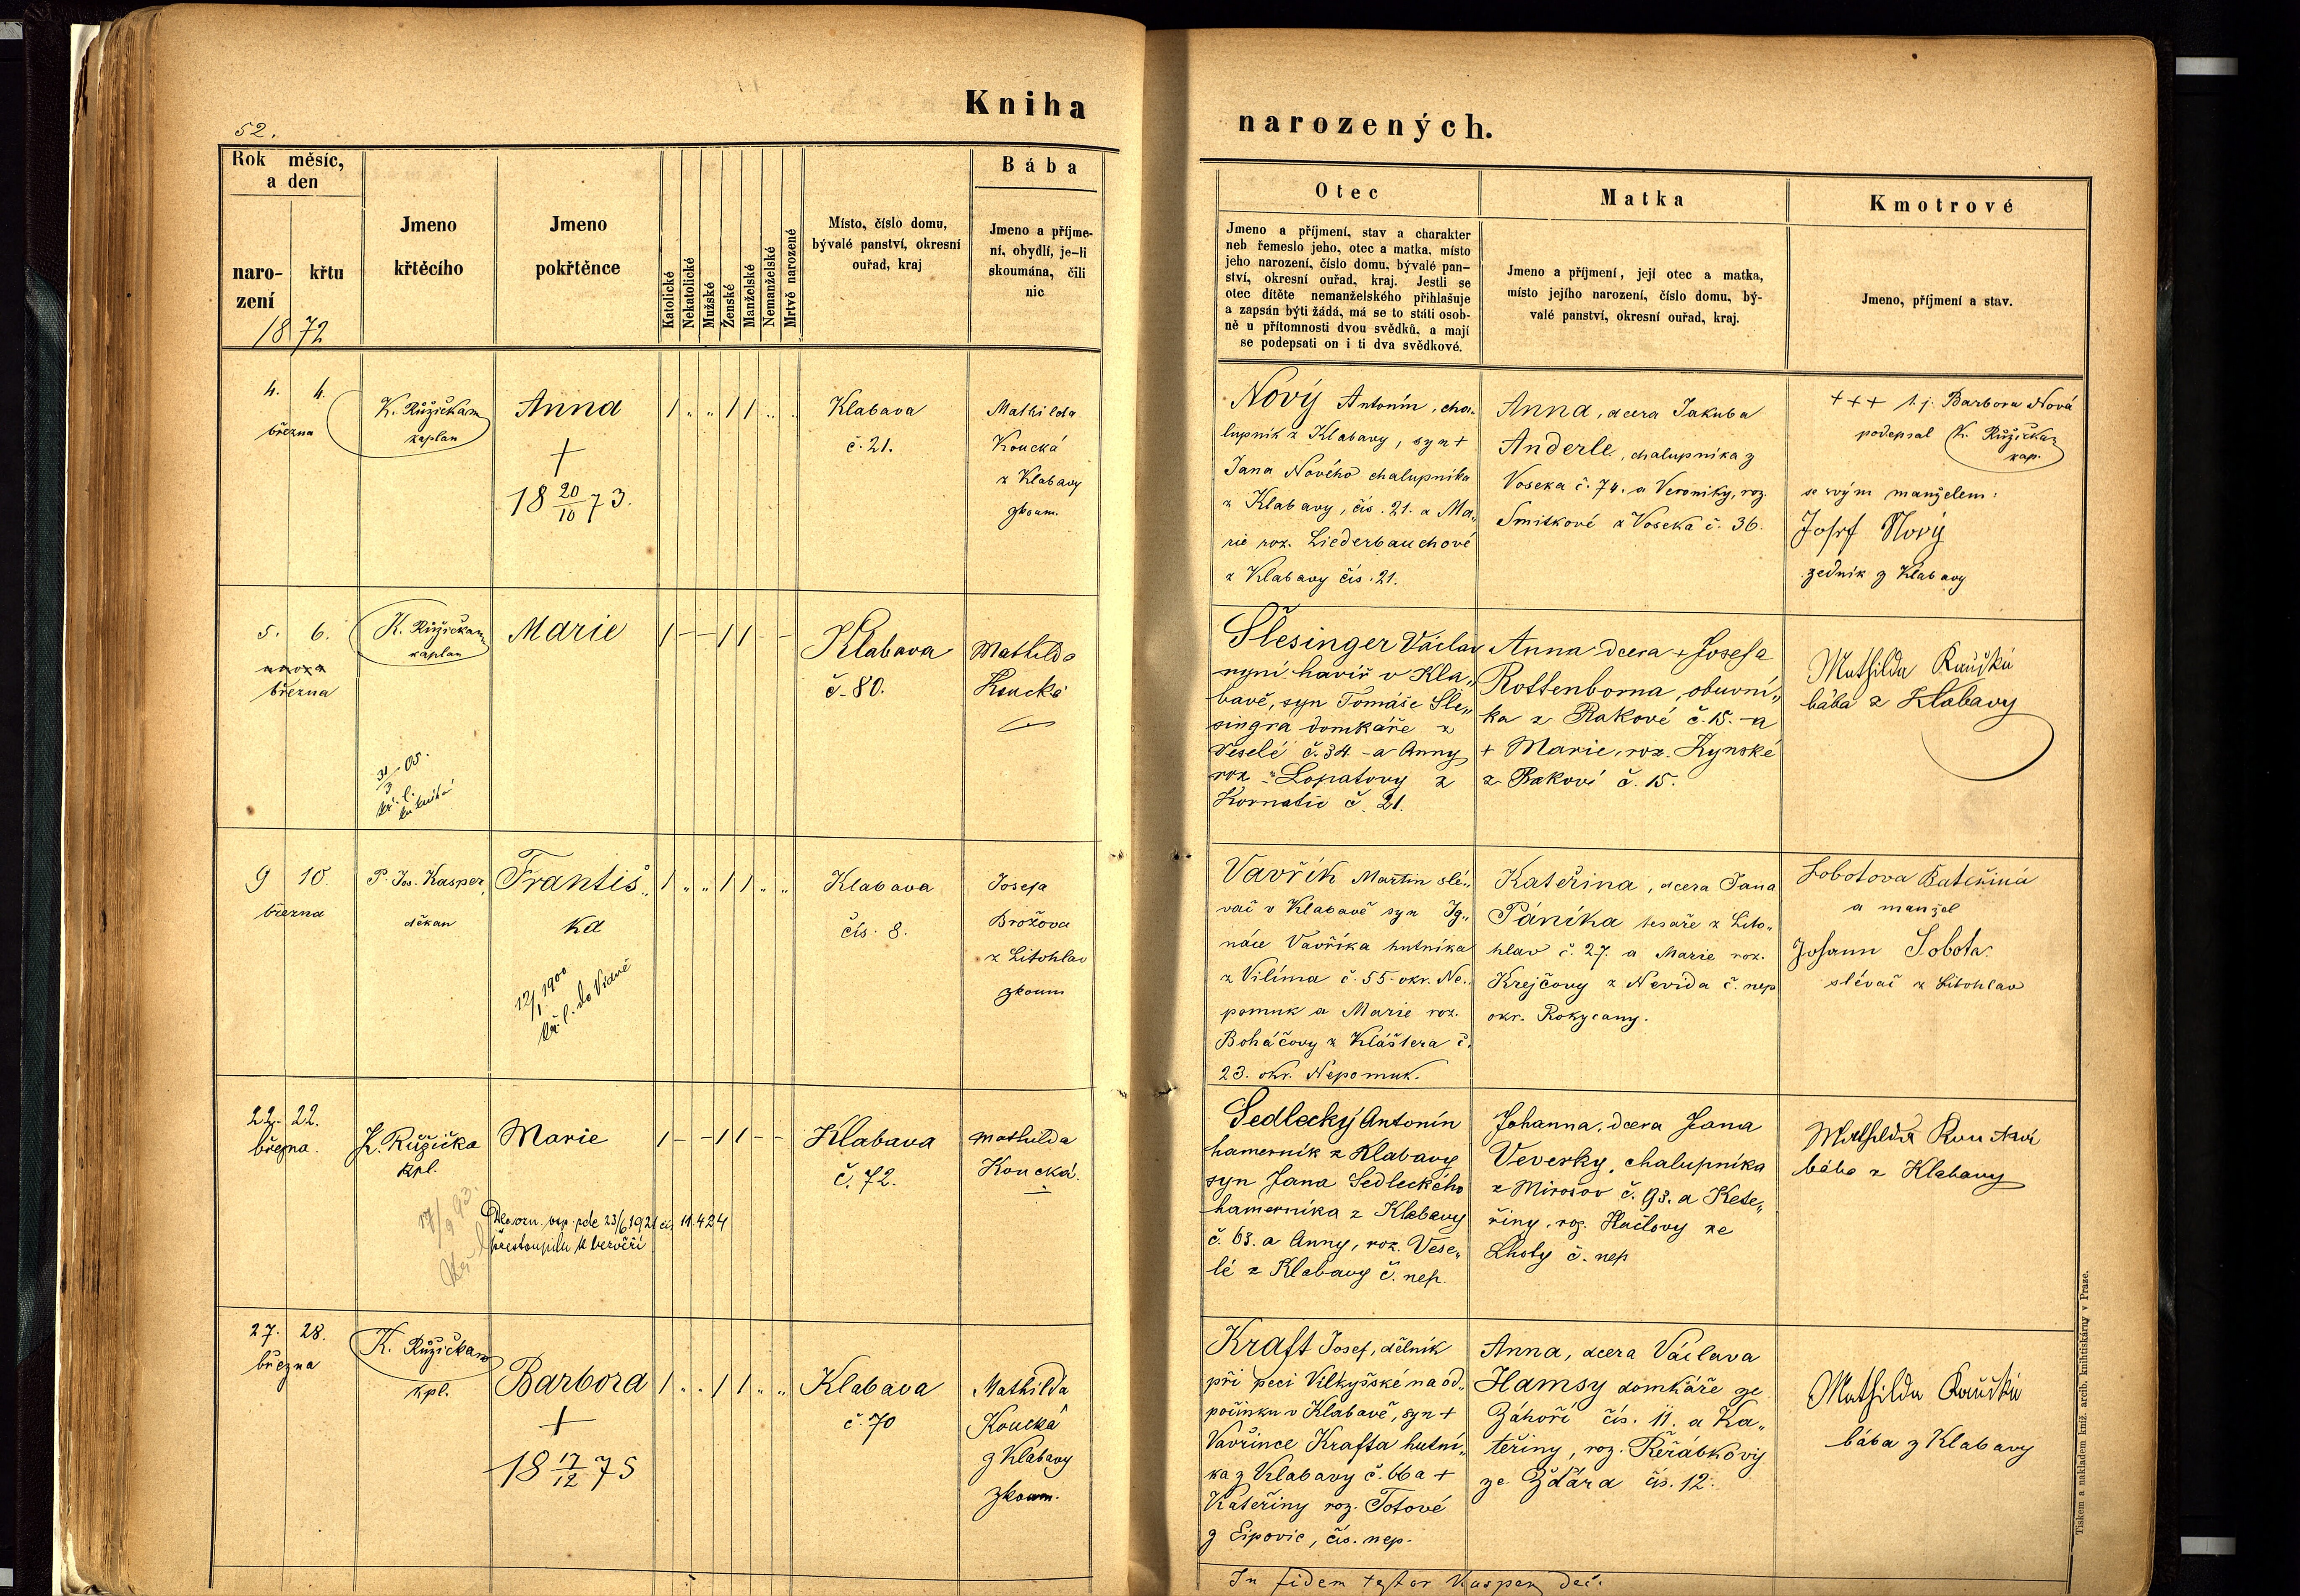 52.
Kniha
narozených.
Rok měsíc,
a den
naro-
zení
křtu
1872
Jmeno
křtěcího
Jmeno
pokřtěnce
Katolické
Nekatolické
Mužské
Ženské
Manželské
Nemanželské
Mrtvě narozené
Místo, číslo domu,
bývalé panství, okresní
ouřad, kraj
Bába
Jmeno a příjme-
ní, obydlí, je-li
skoumána, čili
nic
Otec
Jmeno a příjmení, stav a charakter
neb řemeslo jeho, otec a matka, místo
jeho narození, číslo domu, bývalé pan-
ství, okresní ouřad, kraj. Jestli se
otec dítěte nemanželského přihlašuje
a zapsán býti žádá, má se to státi osob-
ně u přítomnosti dvou svědků, a mají
se podepsati on i ti dva svědkové.
Matka
Jmeno a příjmení, její otec a matka,
místo jejího narození, číslo domu, bý-
valé panství, okresní ouřad, kraj.
Kmotrové
Jmeno, příjmení a stav.
4. 4.
března
K. Růžička
kaplan
Anna
+
18 20/10 73.
Klabava
č. 21.
Mathilda
Koucká
z Klabavy
zkoum.
Nový Antonín, cha-
lupník z Klabavy, syn +
Jana Nového chalupníka
z Klabavy, čís. 21. a Ma„
rie roz. Liederbauchové
z Klabavy čís. 21.
Anna, dcera Jakuba
Anderle, chalupníka z
Voseka č. 74. a Veroniky, roz.
Smitkové z Voseka č. 36.
+++ t. j. Barbora Nová
podepsal K. Růžička
kap.
se svým manželem:
Josef Nový
zedník z Klabavy
5. 6.
února
března
K. Růžička
kaplan
31/3 05.
kř. l.
Marie
Klabava
č. 80.
Mathilda
Koucká
Šlesinger Václav
nyní havíř v Kla„
bavě, syn Tomáše Šle„
singra domkáře z
Veselé č. 34 - a Anny
roz. Lopatovy z
Kornatic č. 21.
Anna dcera + Josefa
Rottenborna, obuvní„
ka z Rakové č. 15. - a
+ Marie, roz. Kynské
z Rakové č. 15.
Mathilda Koucká
bába z Klabavy
9 10.
března
P. Jos. Kasper,
děkan
Františ„
ka
12/1 1900
kř. l. do Vídně
Klabava
čís. 8.
Josefa
Brožova
z Litohlav
zkoum
Vavřík Martin slé„
vač v Klabavě syn Ig„
náce Vavříka hutníka
z Vilíma č. 55 - okr. Ne„
pomuk a Marie roz.
Boháčovy z Kláštera č.
23. okr. Nepomuk.
Kateřina, dcera Jana
Páníka tesaře z Lito„
hlav č. 27. a Marie roz.
Krejčovy z Nevida č. nep
okr. Rokycany.
Sobotova Kateřina
a manžel
Johann Sobota
slévač z Litohlav
22. 22.
března.
K. Růžička
kpl.
17/9 93.
Marie
23/6 1921 čís 11.424
přestoupila k bezvěří
Klabava
č. 72.
Mathilda
Koucká.
Sedlecký Antonín
hamerník z Klabavy
syn Jana Sedleckého
hamerníka z Klabavy
č. 63. a Anny, roz. Vese„
lé z Klabavy č. nep.
Johanna, dcera Jana
Veverky, chalupníka
z Mirosov č. 93. a Kate„
řiny, roz. Hučlovy ze
Lhoty č. nep
Mathilda Koucká
bába z Klabavy
27. 28.
března
K. Růžička
kpl.
Barbora
+
18 17/12 75
Klabava
č. 70
Mathilda
Koucká
z Klabavy
zkoum.
Kraft Josef, dělník
při peci Vilkyšské na od„
počinku v Klabavě, syn +
Vavřince Krafta hutní„
ka z Klabavy č. 66 a +
Kateřiny roz. Totové
z Lipovic, čís. nep.
Anna, dcera Václava
Hamsy domkáře ze
Záhoří čís. 11. a Ka„
teřiny, roz. Řeřábkovy
ze Ždára čís. 12.
Mathilda Koucká
bába z Klabavy
In fidem testor Kasper, děk.
Tiskem a nákladem kníž. arcib. knihtiskárny v Praze.